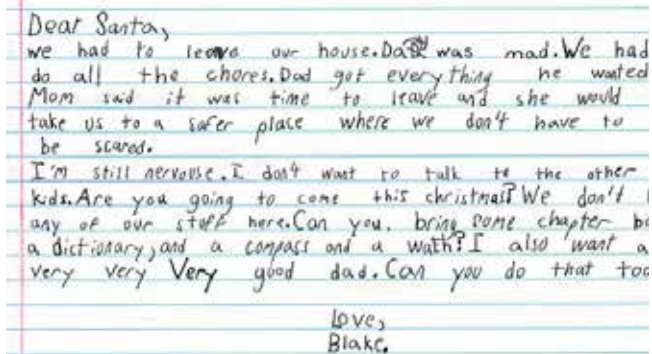 Dear Santa,
we had to leave our house. Dad was mad. We had
do all the chores. Dad got everything he wanted
Mom said it was time to leave and she would
take us to a safer place where we don't have to
be scared.
I'm still nervouse. I don't want to talk to the other
kids. Are you going to come this christmas? We don't
any of our stoff here. Can you, bring some chapter bo
a dictionary, and a compass and a wath? I also want a
very very Very good dad. Can you do that too
Love,
Blake.